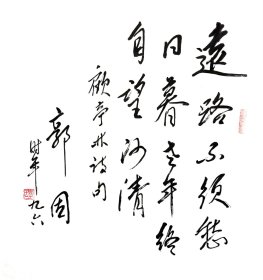 遠路不須愁
日暮老年終
自望河清
顧亭林詩句
郭因
時年九六